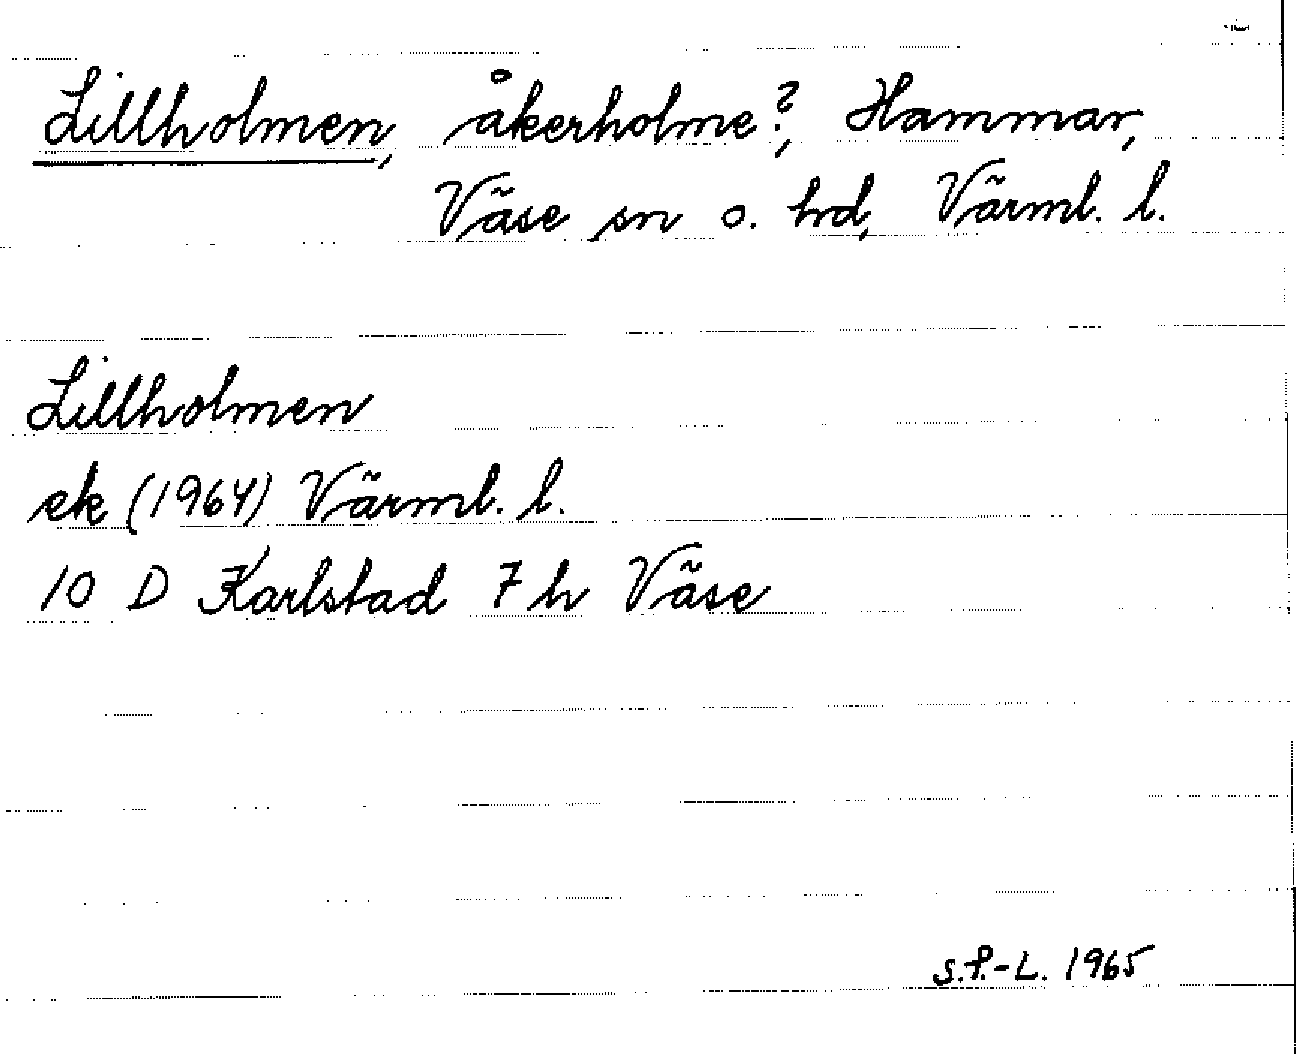 Lillholmen, åkerholme?, Hammar,
Väse sn o. hd, Värml. l.
Lillholmen
ek (1964) Värml. l.
10 D Karlstad 7 h Väse
S.P.-L. 1965